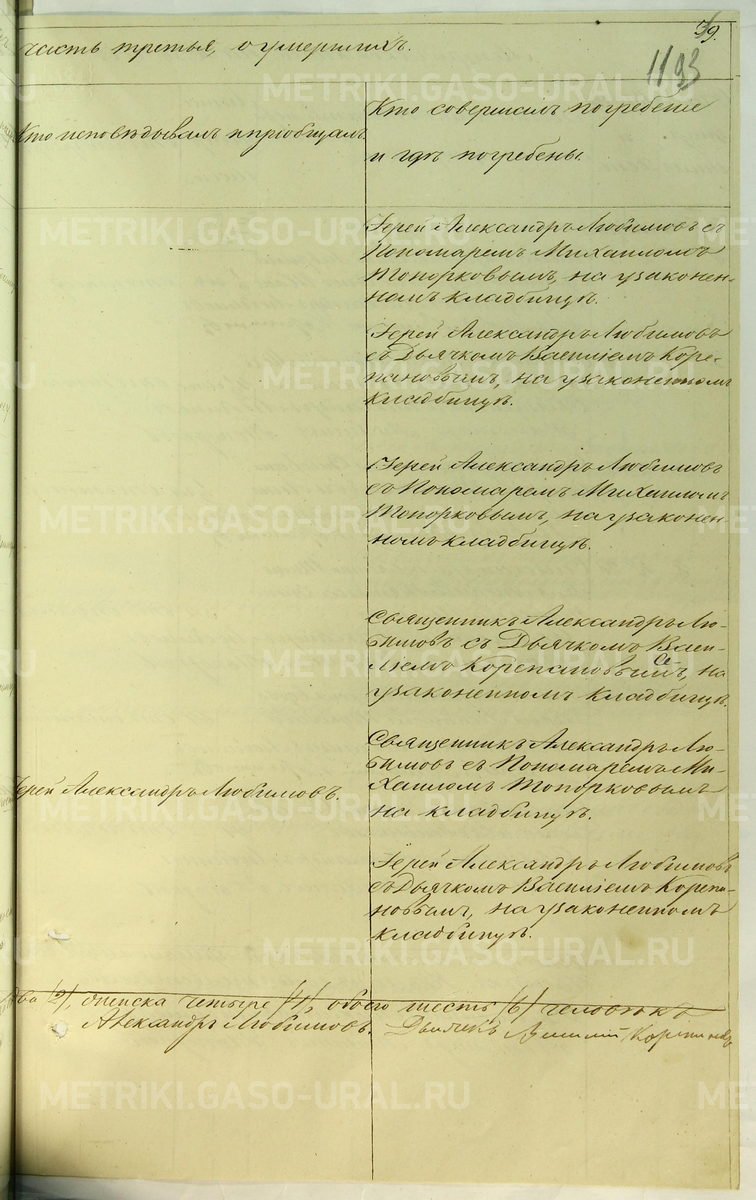 39.
1193
часть третья, о умершихъ.
Кто исповѣдывалъ и пріобщалъ.
Кто совершилъ погребеніе
и гдѣ погребены.
Іерей Александръ Любимовъ съ
Пономаремъ Михаиломъ
Топорковымъ, на узаконен-
номъ кладбищѣ.
Іерей Александръ Любимовъ
съ Дьячкомъ Василіемъ Коре-
пановымъ, на узаконенномъ
кладбищѣ.
Іерей Александръ Любимовъ
съ Пономаремъ Михаиломъ
Топорковымъ, на узаконен-
номъ кладбищѣ.
Священникъ Александръ Лю-
бимовъ съ Дьячкомъ Васи-
ліемъ Корепановымъ, на
узаконенномъ кладбищѣ.
Священникъ Александръ Лю-
бимовъ съ Пономаремъ Ми-
хаиломъ Топорковымъ
на кладбищѣ.
Іерей Александръ Любимовъ.
Іерей Александръ Любимовъ
съ Дьячкомъ Василіемъ Корепа-
новымъ, на узаконенномъ
кладбищѣ.
два (2), женска четыре (4), обоего шесть (6) человѣкъ
Александръ Любимовъ. Дьячекъ Василій Корепановъ
METRIKI.GASO-URAL.RU